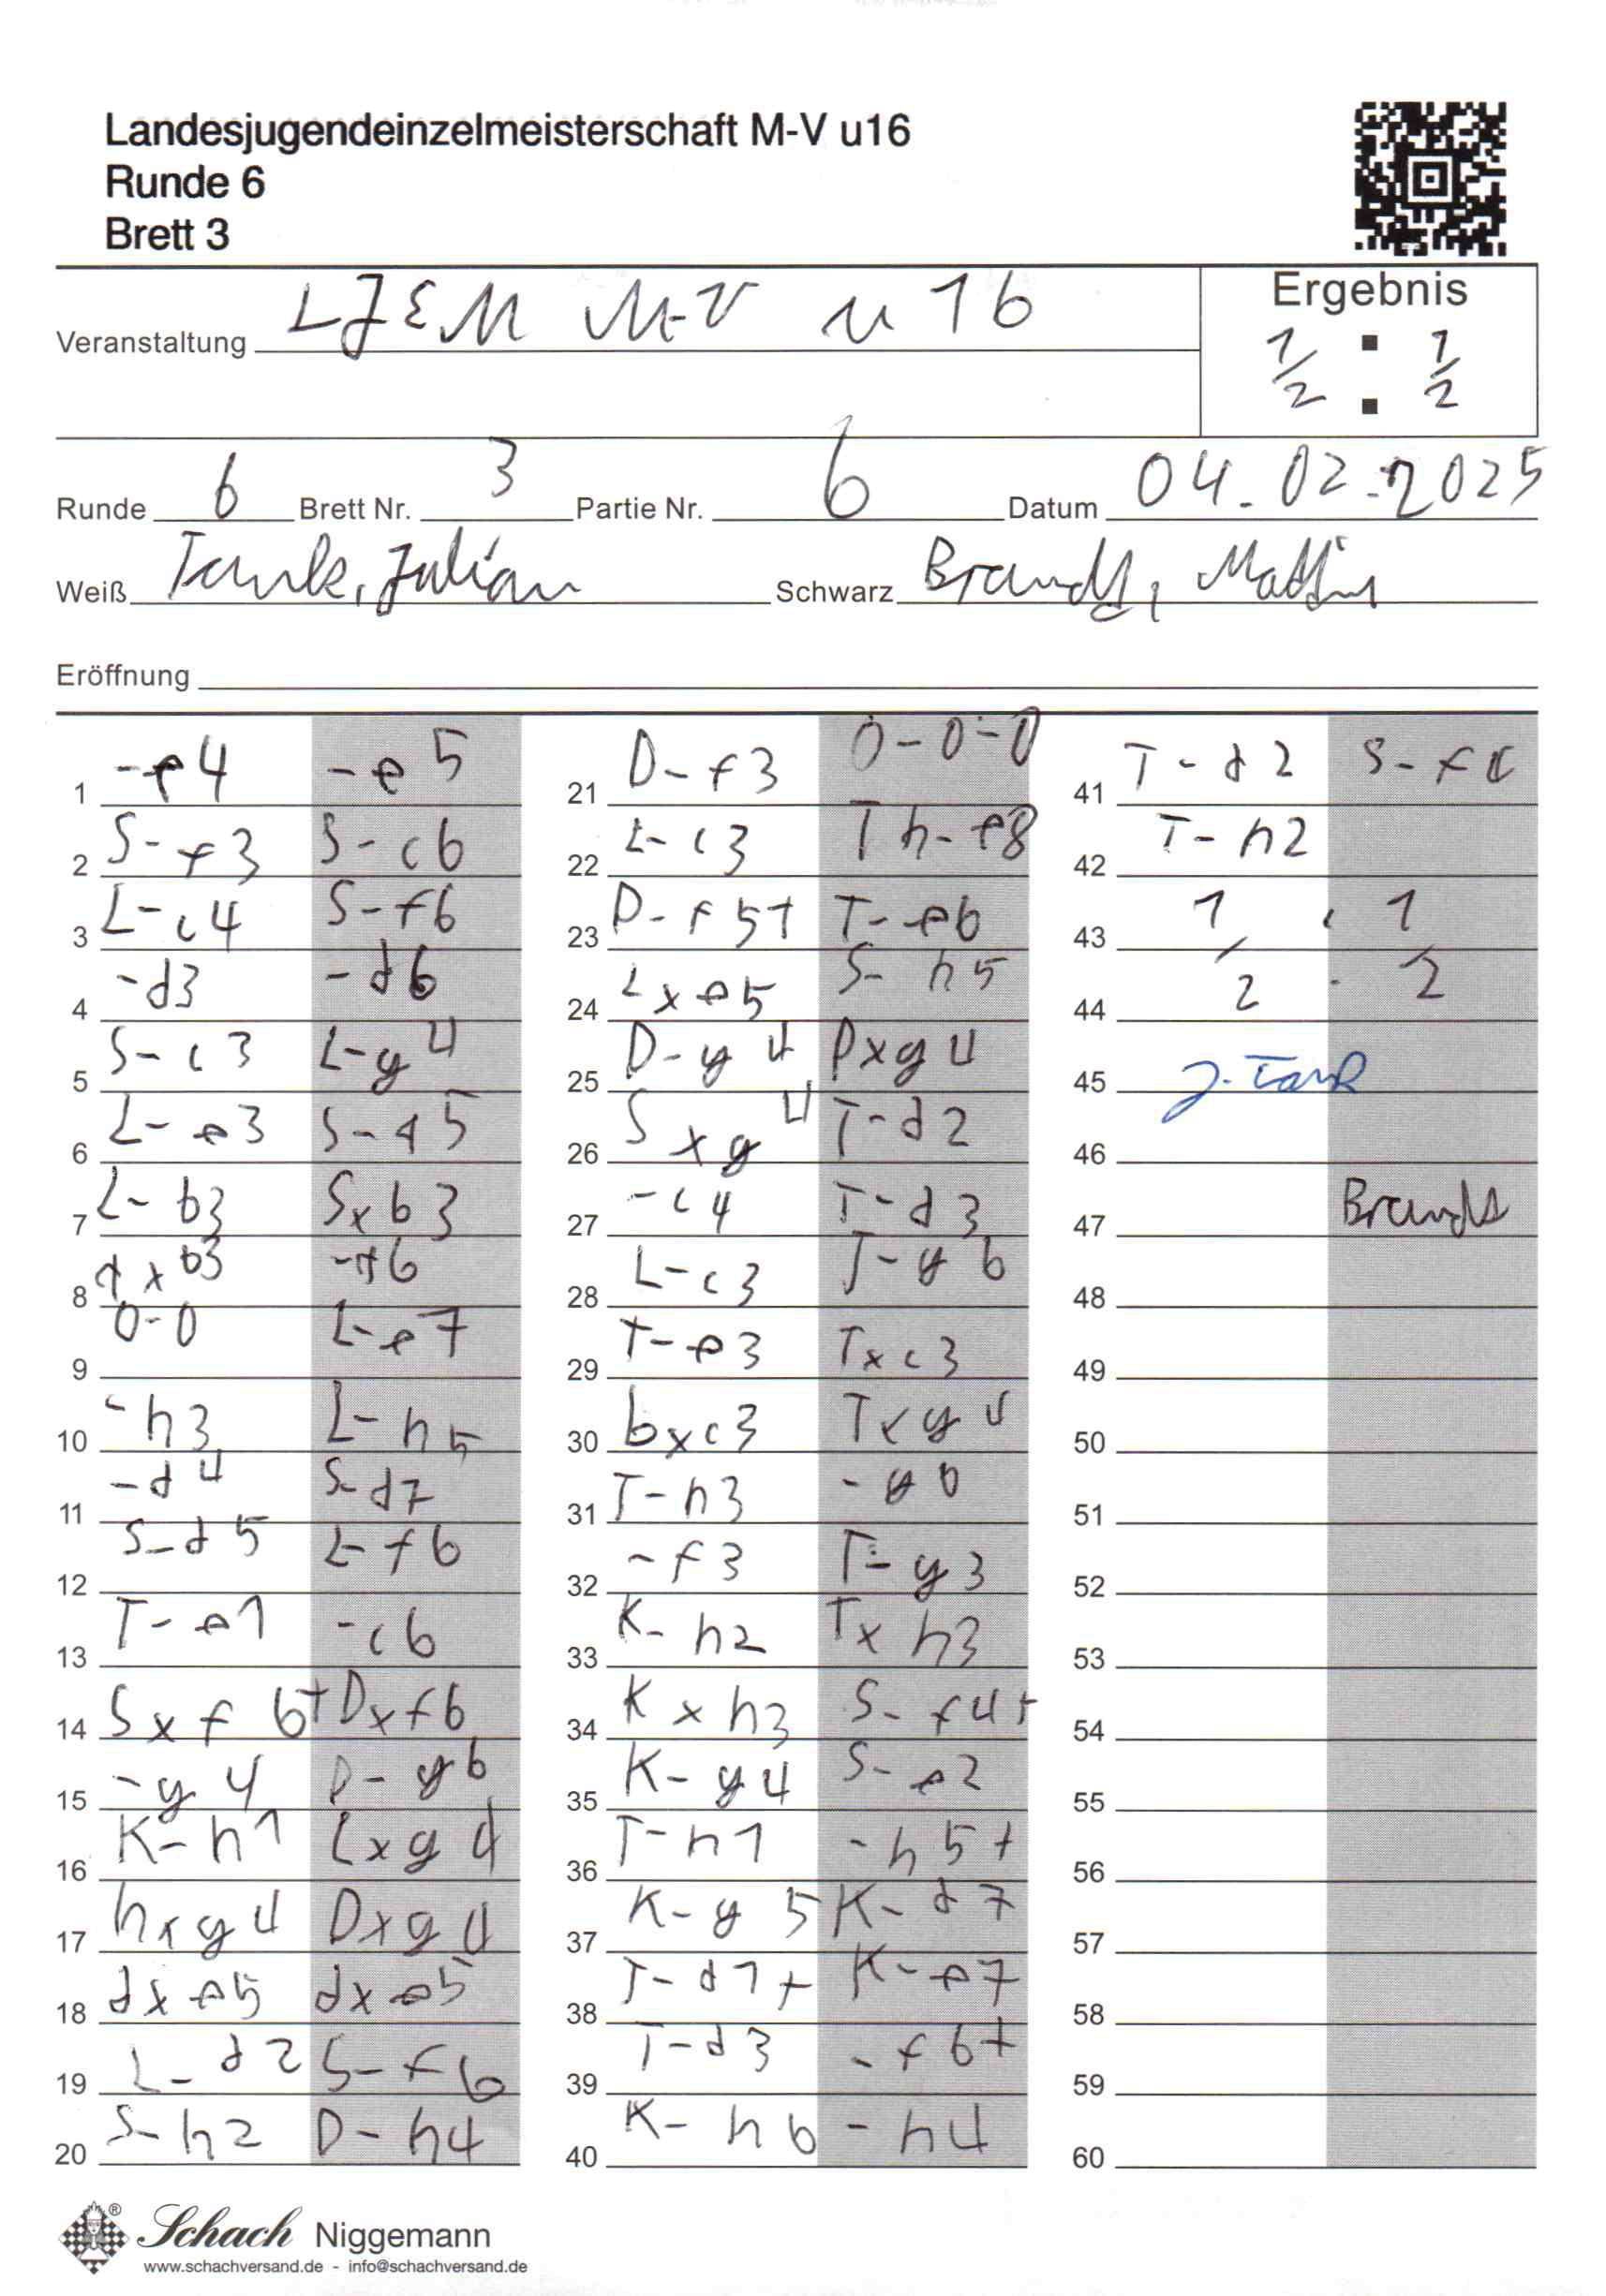 Landesjugendeinzelmeisterschaft M-V u16
Runde 6
Brett 3
Veranstaltung LJEM M-V u 16
Ergebnis
1/2 : 1/2
Runde 6 Brett Nr. 3 Partie Nr. 6 Datum 04.02.2025
Weiß Tank, Julian Schwarz Brandt,
Eröffnung
1 -e4 -e5
2 S-f3 S-c6
3 L-c4 S-f6
4 -d3 -d6
5 S-c3 L-g4
6 L-e3 S-a5
7 L-b3 Sxb3
8 axb3 -a6
9 0-0 L-e7
10 -h3 L-h5
11 -d4 S-d7
12 S-d5 L-f6
13 T-e1 -c6
14 Sxf6+ Dxf6
15 -g4 D-g6
16 K-h1 Lxg4
17 hxg4 Dxg4
18 dxe5 dxe5
19 L-d2 S-f6
20 S-h2 D-h4
21 D-f3 0-0-0
22 L-c3 Th-e8
23 D-f5+ T-e6
24 Lxe5 S-h5
25 D-g4 Dxg4
26 Sxg4 T-d2
27 -c4 T-d3
28 L-c3 T-g6
29 T-e3 Txc3
30 bxc3 Txg4
31 T-h3 -g6
32 -f3 T-g3
33 K-h2 Txh3
34 Kxh3 S-f4+
35 K-g4 S-e2
36 T-h1 -h5+
37 K-g5 K-d7
38 T-d1+ K-e7
39 T-d3 -f6+
40 K-h6 -h4
41 T-d2 S-f4
42 T-h2
43 1 . 1
44 2 . 2
45 J. Tank
46
47 Brandt
48
49
50
51
52
53
54
55
56
57
58
59
60
Schach Niggemann
www.schachversand.de - info@schachversand.de